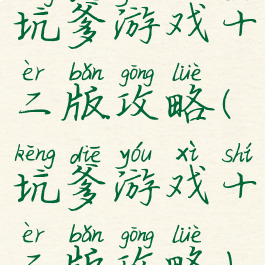 坑爹游戏十
èr bǎn gōng lüè
二版攻略(
kēng diē yóu xì shí
坑爹游戏十
èr bǎn gōng lüè
二版攻略)